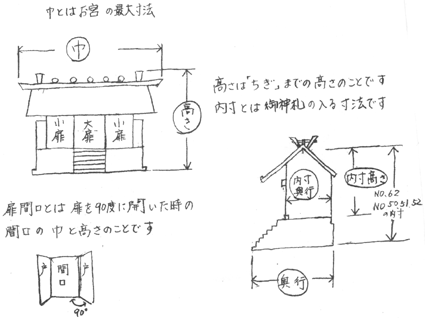 巾とはお宮の最大寸法
巾
高さ
小扉
大扉
小扉
高さは「ちぎ」までの高さのことです
内寸とは御神札の入る寸法です
内寸奥行
内寸高さ
NO.62
NO 50.51.52
の内寸
奥行
扉間口とは扉を90度に開いた時の
間口の巾と高さのことです
戸
間口
戸
90°